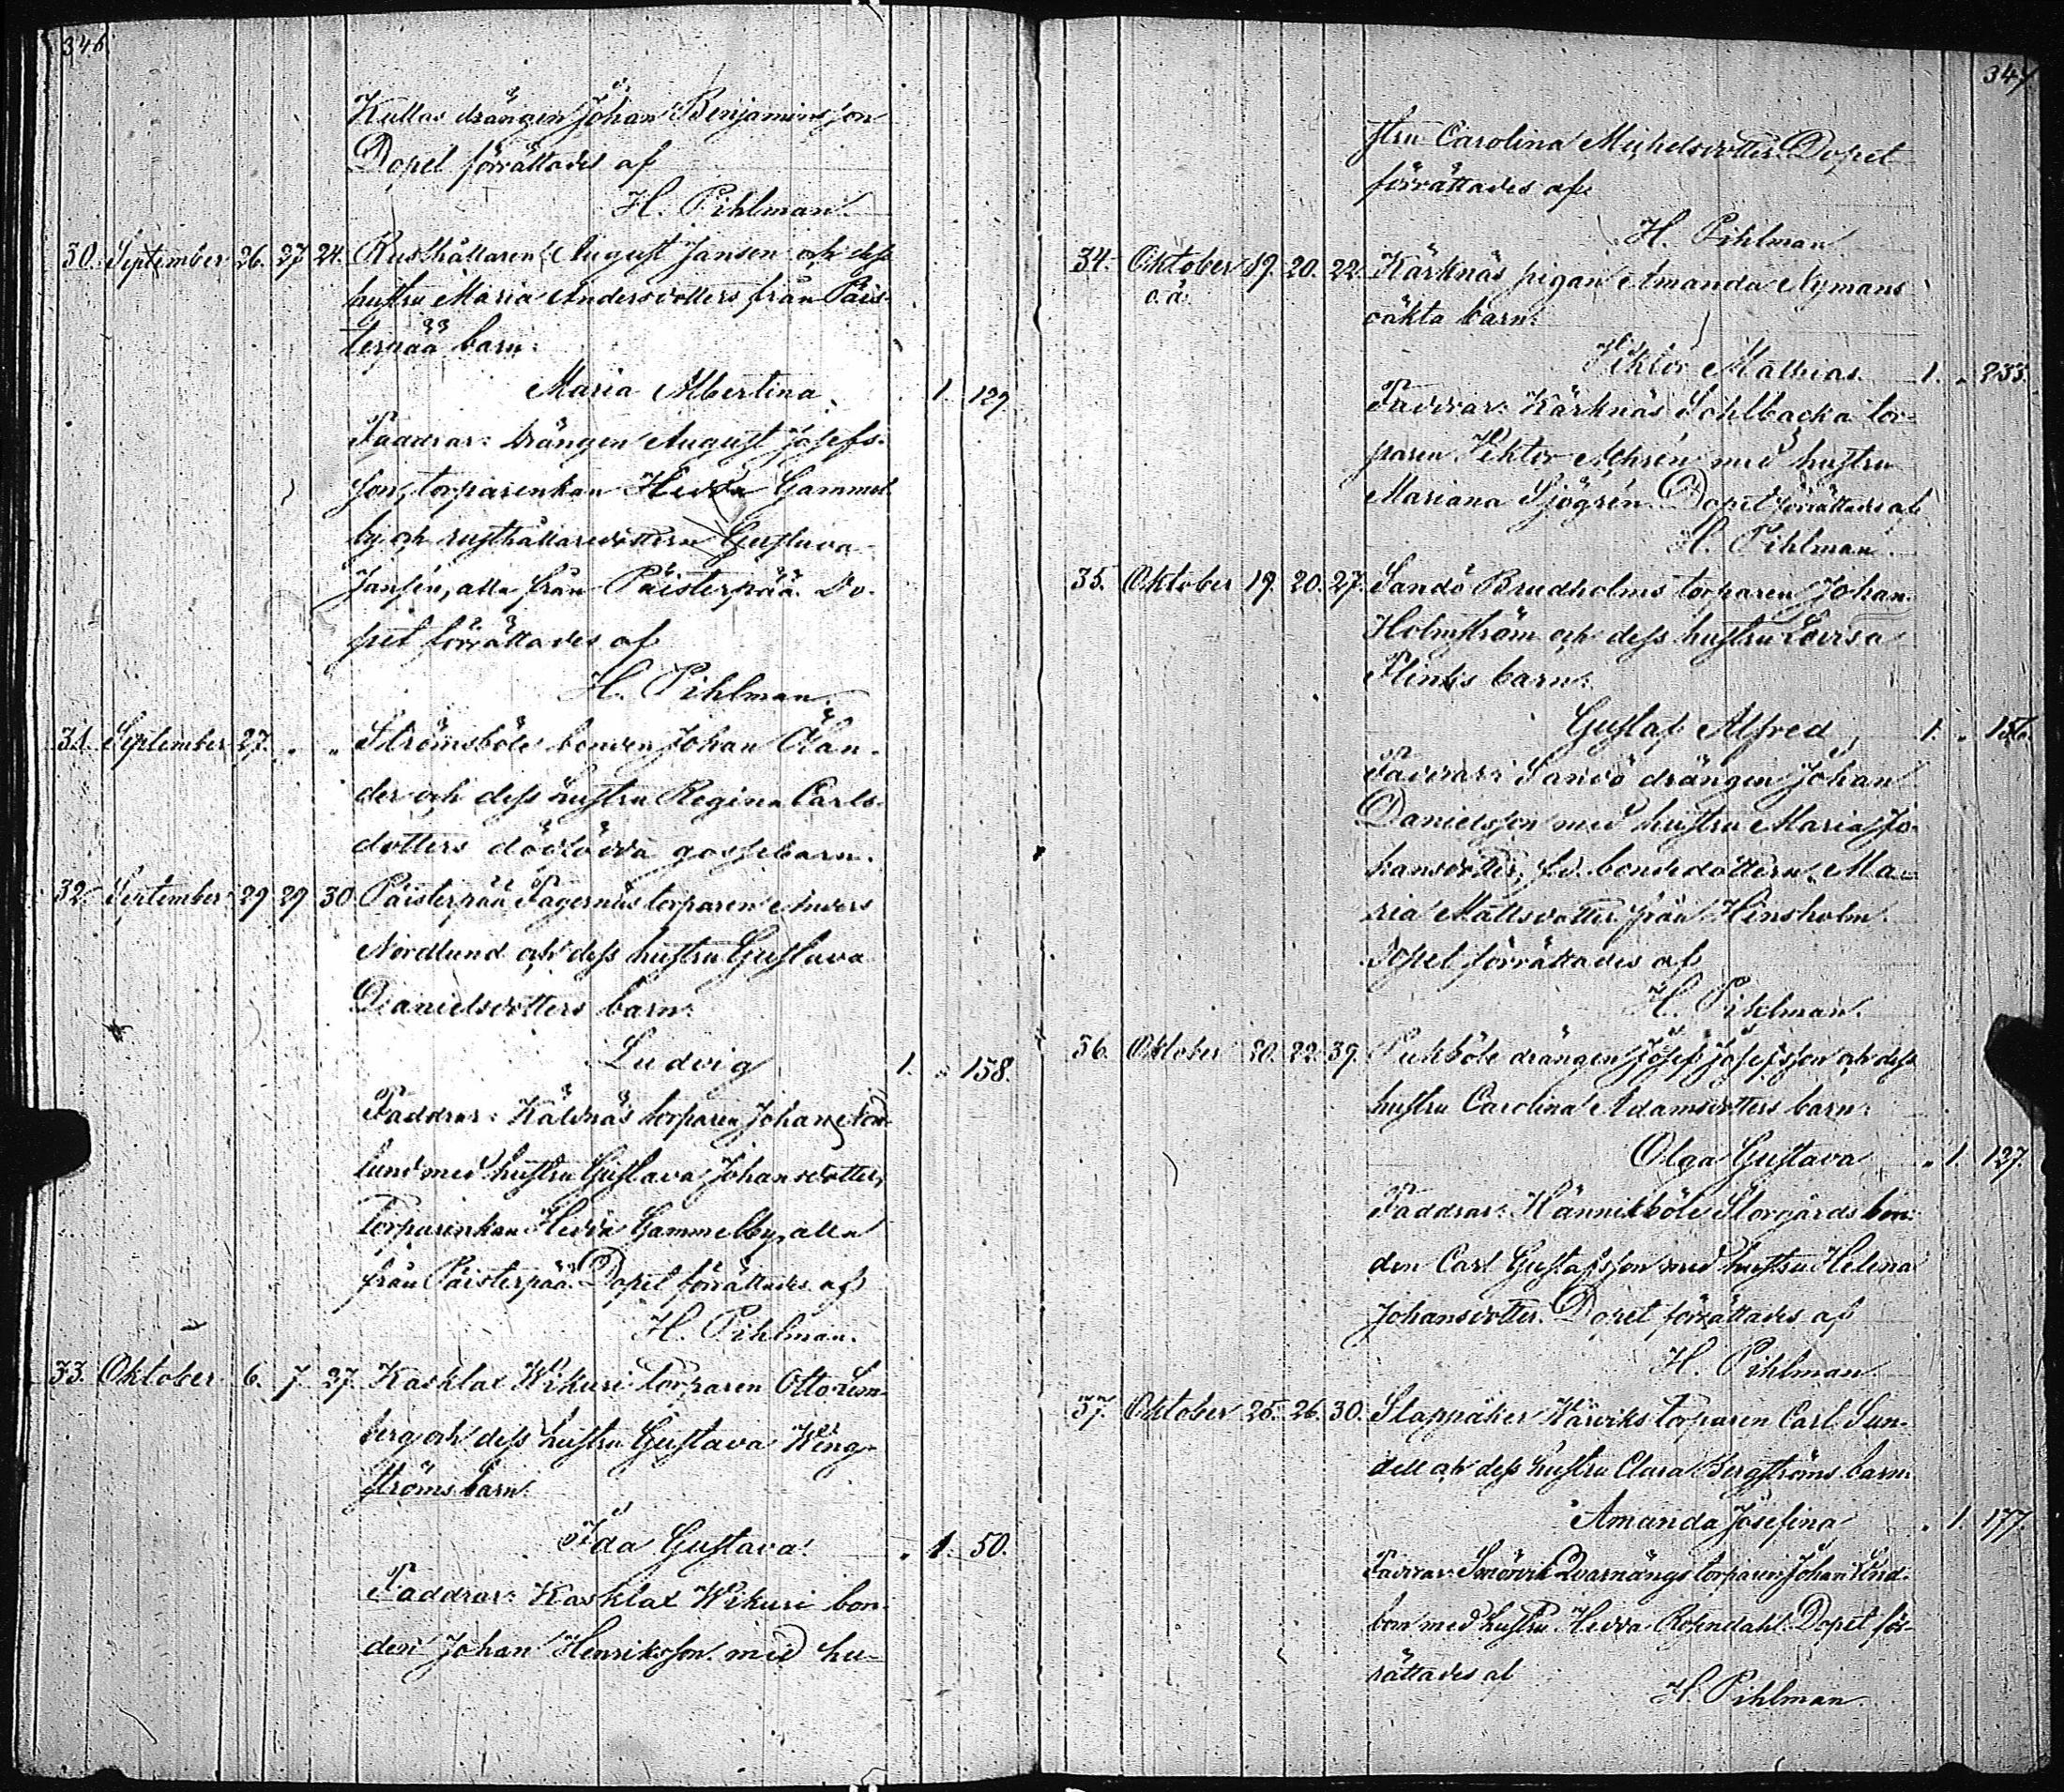 346.
Kullas drängen Johan Benjaminsson
Dopet förrättades af
H. Pihlman.
30. September 26. 27 24. Rusthållaren August Jansen och dess
hustru Maria Andersdotters från Päis-
terpää barn:
Maria Albertina 1. 129.
Faddrar: drängen August Josefs-
son, torparenkan Hedda Gammel
by och rusthållaredottern Gustava
Jansén, alla från Päisterpää. Do-
pet förrättades af
H. Pihlman.
31. September 27. " " Strömsböle bonden Johan Ölan-
der och dess hustru Regina Carls-
dotters dödfödda gossebarn.
32. September 29 29 30. Päisterpää Fagernäs torparen Anders
Nordlund och dess hustru Gustava
Danielsdotters barn:
Ludvig 1. " 158.
Faddrar: torparen Johan Nord-
lund med hustru Gustava Johansdotter,
Torparenkan Hedda Gammelby, alla
från Päisterpää. Dopet förrättades af
H. Pihlman.
33. Oktober 6. 7. 27. Kasklax Wikuri torparen Otto Lem-
berg och dess hustru Gustava Weng-
ströms barn:
Ida Gustava. " 1. 50.
Faddrar: Kasklax Wikuri bon-
den Johan Henriksson med hu-
347.
stru Carolina Michelsdotter. Dopet
förrättades af
H. Pihlman
34. Oktober 19. 20. 22. Kärknäs pigan Amanda Nymans
o.ä. oäkta barn:
Viktor Mathias 1. " 233.
Faddrar: Kärknäs Sohlbacka tor-
paren Viktor med hustru
Mariana Sjögrén. Dopet förrättades af
H. Pihlman.
35. Oktober 19. 20. 27. Sandö Brudholms torparen Johan
Holmström och dess hustru Lovisa
Flinks barn:
Gustaf Alfred 1. " 156.
Faddrar: Sandö drängen Johan
Danielsson med hustru Maria Jo-
hansdotter, bondedottern Ma-
ria Mattsdotter från Hinsholm.
Dopet förrättades af
H. Pihlman.
36. Oktober 20. 22. 39. Pukböle drängen Josef Josefsson och dess
hustru Carolina Adamsdotters barn:
Olga Gustava " 1. 127.
Faddrar: Hännikböle Storgårds bon-
den Carl Gustafsson med hustru Helena
Johansdotter. Dopet förrättades af
H. Pihlman.
37. Oktober 25. 26. 30. Slappåker torparen Carl Sun-
dell och dess hustru Clara Bergströms barn:
Amanda Josefina " 1. 177.
Faddrar: Smörvik Qvarnängs torparen Johan Lind-
bom med hustru Hedda Rosendahl. Dopet för-
rättades af
H. Pihlman